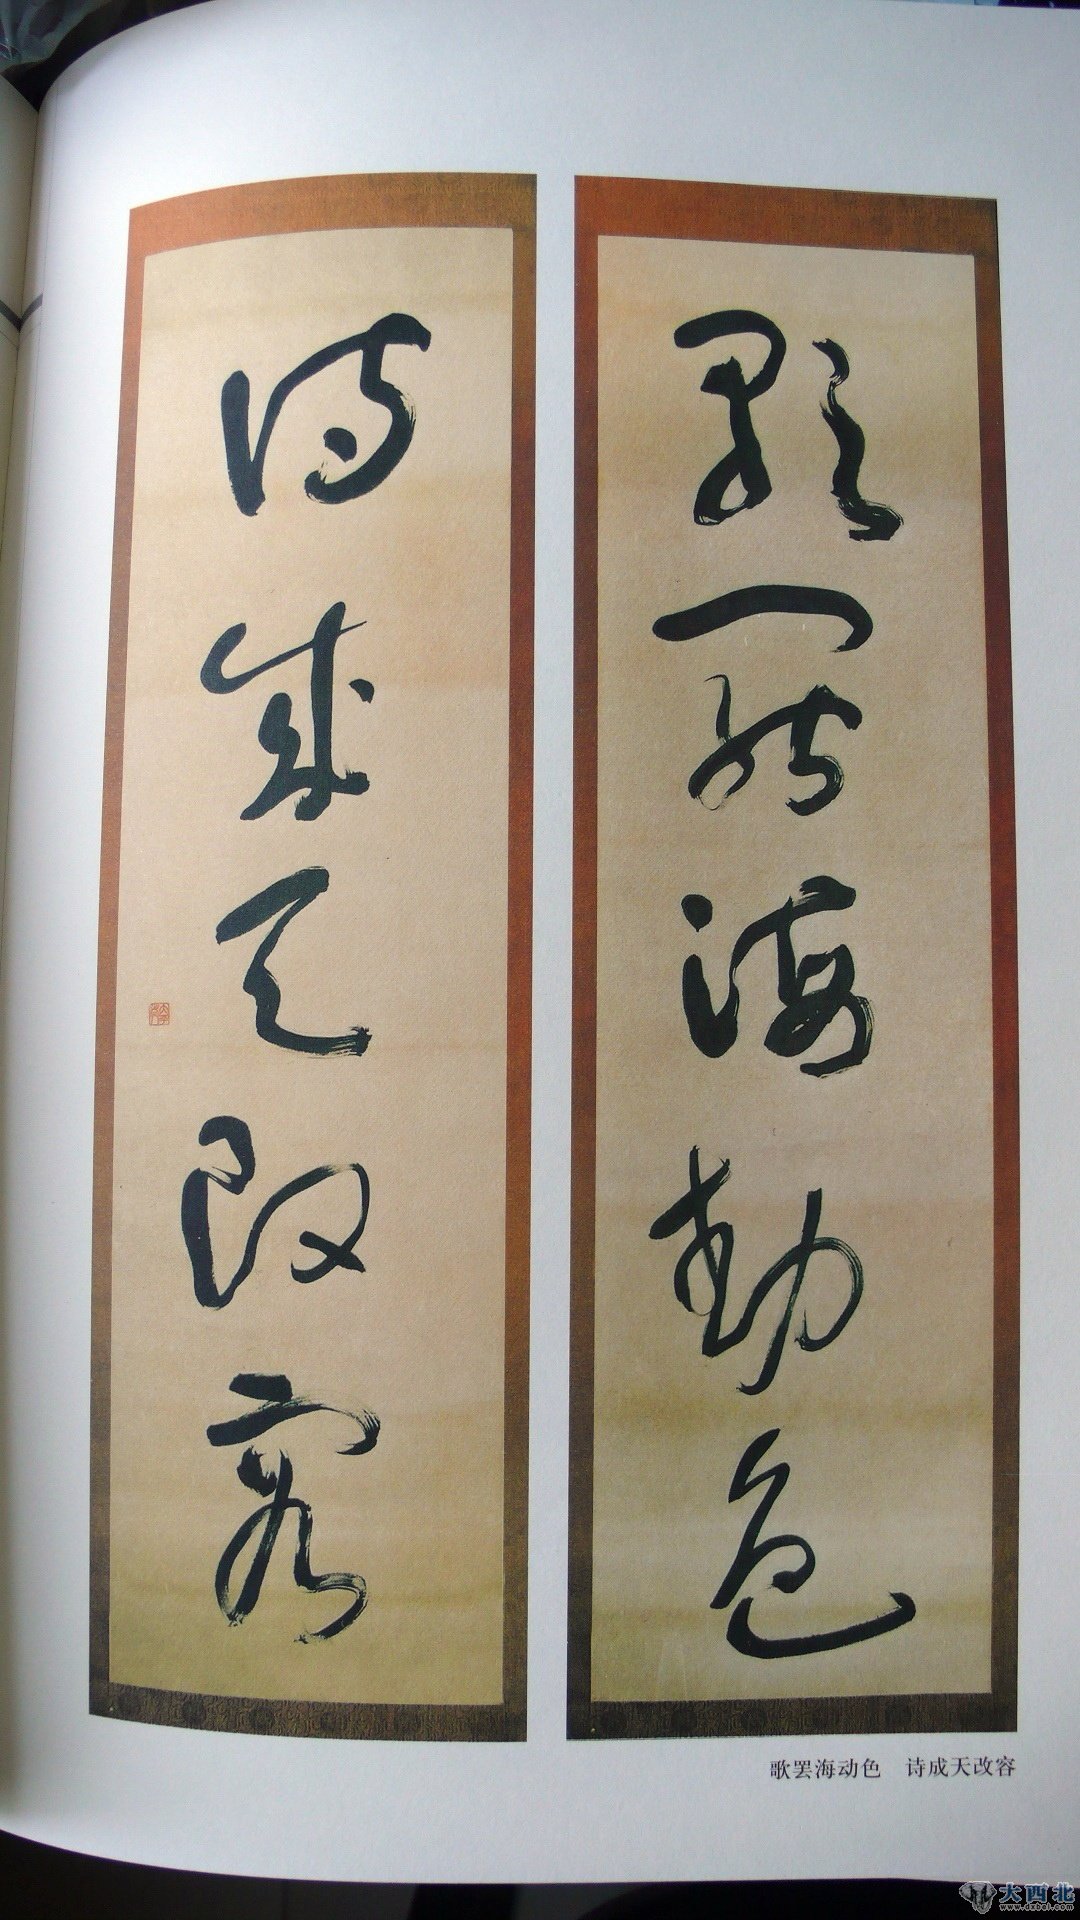 歌罢海动色
诗成天改容
歌罢海动色　诗成天改容
大西北
www.dxbei.com